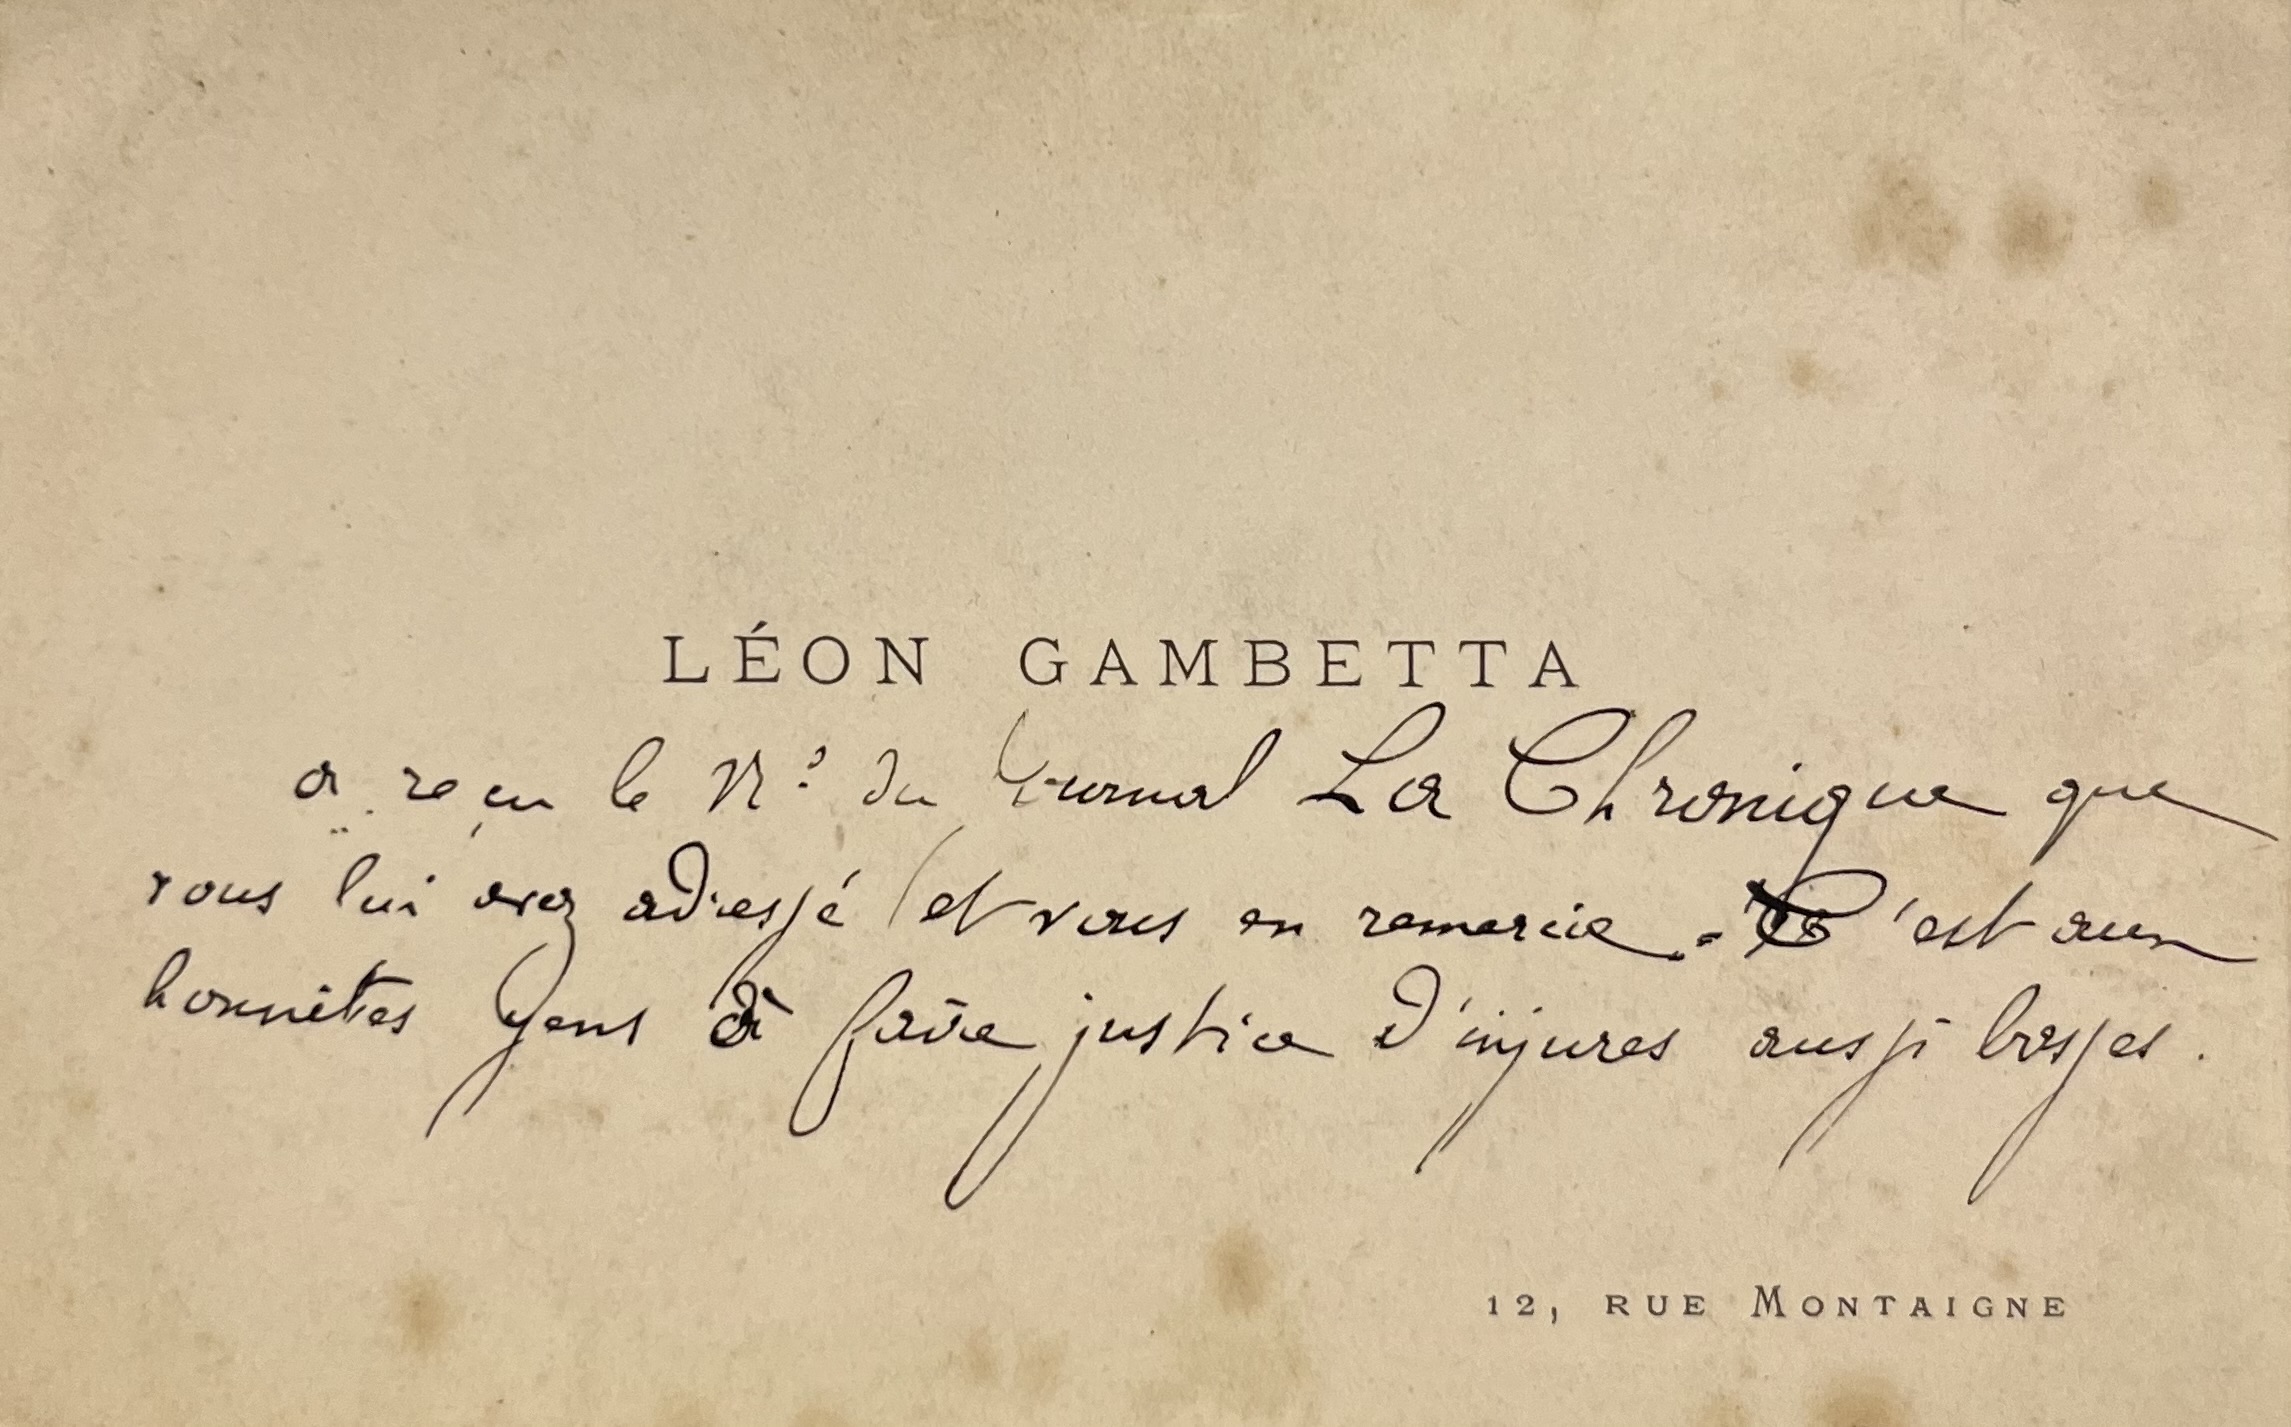 LÉON GAMBETTA
a reçu le N° du Journal La Chronique que
vous lui avez adressé et vous en remercie. - C'est aux
honnêtes gens à faire justice d'injures aussi basses.
12, RUE MONTAIGNE